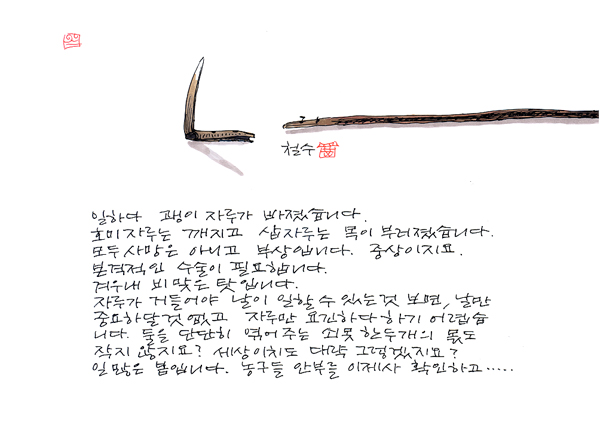 철수
일하다 괭이 자루가 빠졌습니다.
호미자루는 깨지고 삽자루는 목이 부러졌습니다.
모두 사망은 아니고 부상입니다. 중상이지요.
본격적인 수술이 필요합니다.
겨우내 비 맞은 탓입니다.
자루가 거들어야 날이 일할 수 있는 것 보면, 날만
중요하달 것 없고 자루만 요긴하다 하기 어렵습
니다. 둘을 단단히 엮어 주는 쇠못 한두개의 몫도
작지 않지요? 세상 이치도 대략 그렇겠지요?
일 많은 봄입니다. 농구들 안부를 이제사 확인하고.....